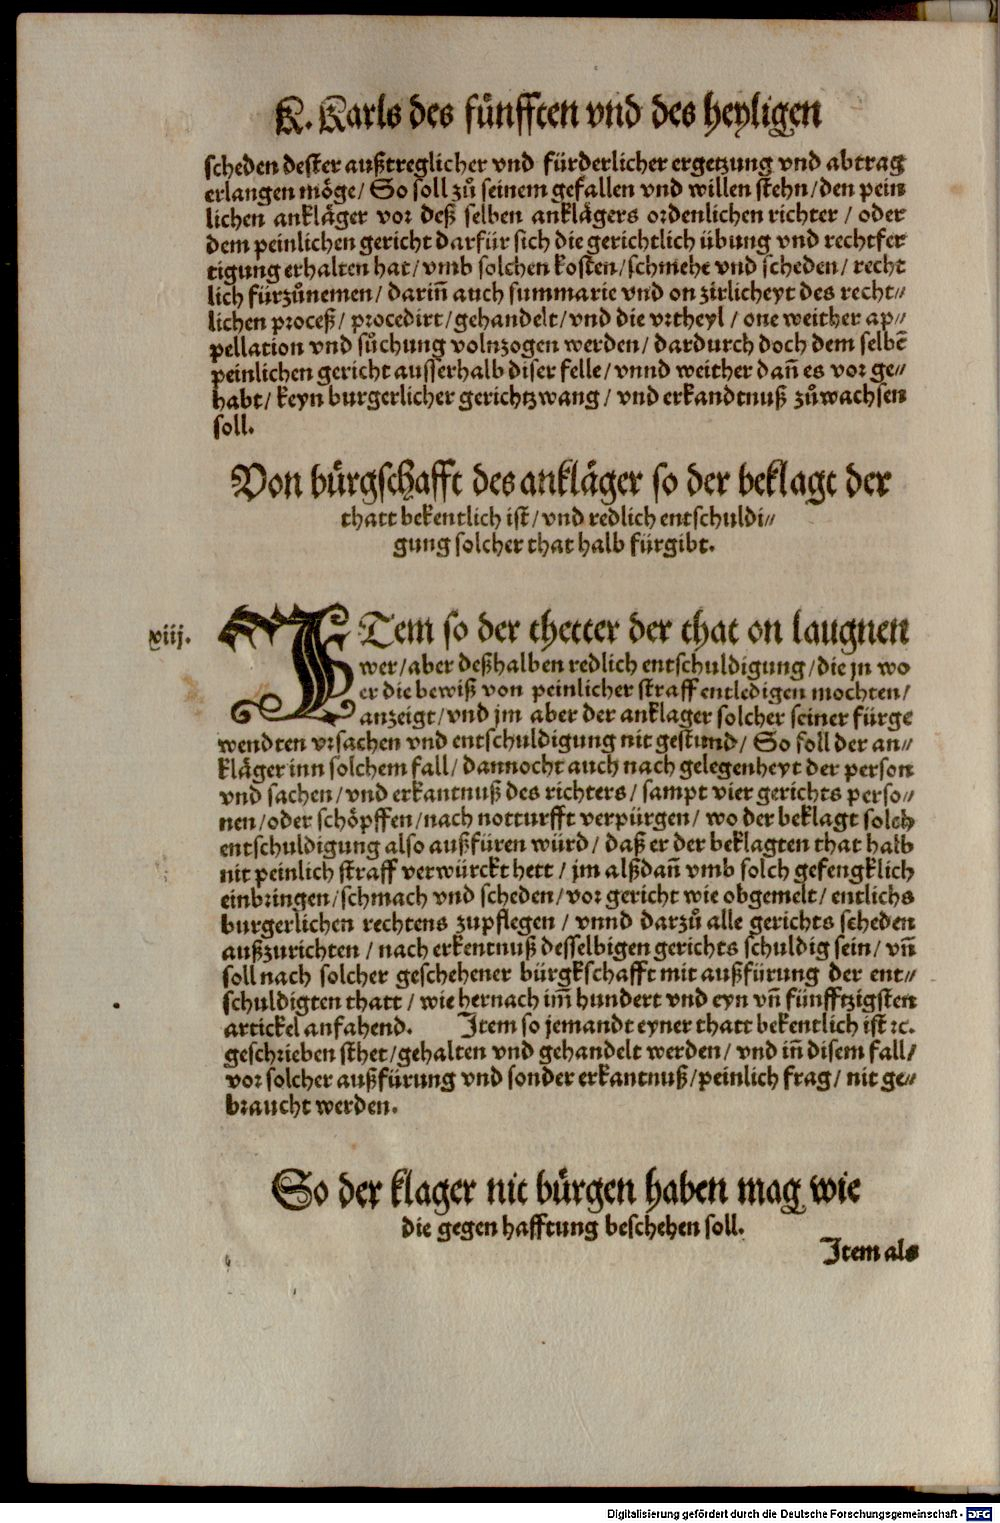 K. Karls des fünfften vnd des heyligen
scheden dester außtreglicher vnd fürderlicher ergetzung vnd abtrag
erlangen möge/ So soll zů seinem gefallen vnd willen stehn/den pein
lichen ankläger vor deß selben anklägers ordenlichen richter / oder
dem peinlichen gericht darfür sich die gerichtlich übung vnd rechtfer
tigung erhalten hat/vmb solchen kosten/schmehe vnd scheden/ recht
lich fürzůnemen/ dariñ auch summarie vnd on zirlicheyt des recht⸗
lichen proceß/ procedirt/gehandelt/vnd die vrtheyl / one weither ap⸗
pellation vnd sůchung volnzogen werden/ dardurch doch dem selbẽ
peinlichen gericht ausserhalb diser felle/ vnnd weither dañ es vor ge⸗
habt/ keyn burgerlicher gerichtzwang/ vnd erkandtnuß zůwachsen
soll.
Von bürgschafft des ankläger so der beklagt der
thatt bekentlich ist/vnd redlich entschuldi⸗
gung solcher that halb fürgibt.
xiij.
ITem so der thetter der that on laugnen
wer/aber deßhalben redlich entschuldigung/die jn wo
er die bewiß von peinlicher straff entledigen mochten/
anzeigt/vnd jm aber der anklager solcher seiner fürge
wendten vrsachen vnd entschuldigung nit gestund/ So soll der an⸗
kläger inn solchem fall/ dannocht auch nach gelegenheyt der person
vnd sachen/vnd erkantnuß des richters/ sampt vier gerichts perso⸗
nen/oder schöpffen/nach notturfft verpürgen/ wo der beklagt solch
entschuldigung also außfüren würd/ daß er der beklagten that halb
nit peinlich straff verwürckt hett/ jm alßdañ vmb solch gefengklich
einbringen/schmach vnd scheden/vor gericht wie obgemelt/ entlichs
burgerlichen rechtens zupflegen / vnnd darzů alle gerichts scheden
außzurichten / nach erkentnuß desselbigen gerichts schuldig sein/ vñ
soll nach solcher geschehener bürgkschafft mit außfürung der ent⸗
schuldigten thatt/ wie hernach im̃ hundert vnd eyn vñ fünfftzigsten
artickel anfahend. Item so jemandt eyner thatt bekentlich ist ꝛc.
geschrieben sthet/gehalten vnd gehandelt werden/ vnd iñ disem fall/
vor solcher außfürung vnd sonder erkantnuß/peinlich frag/ nit ge⸗
braucht werden.
So der klager nit bürgen haben mag wie
die gegen hafftung beschehen soll.
Item als
Digitalisierung gefördert durch die Deutsche Forschungsgemeinschaft - DFG